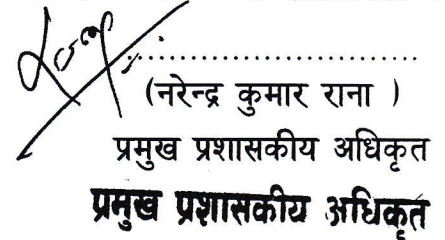 ..............................
(नरेन्द्र कुमार राना )
प्रमुख प्रशासकीय अधिकृत
प्रमुख प्रशासकीय अधिकृत